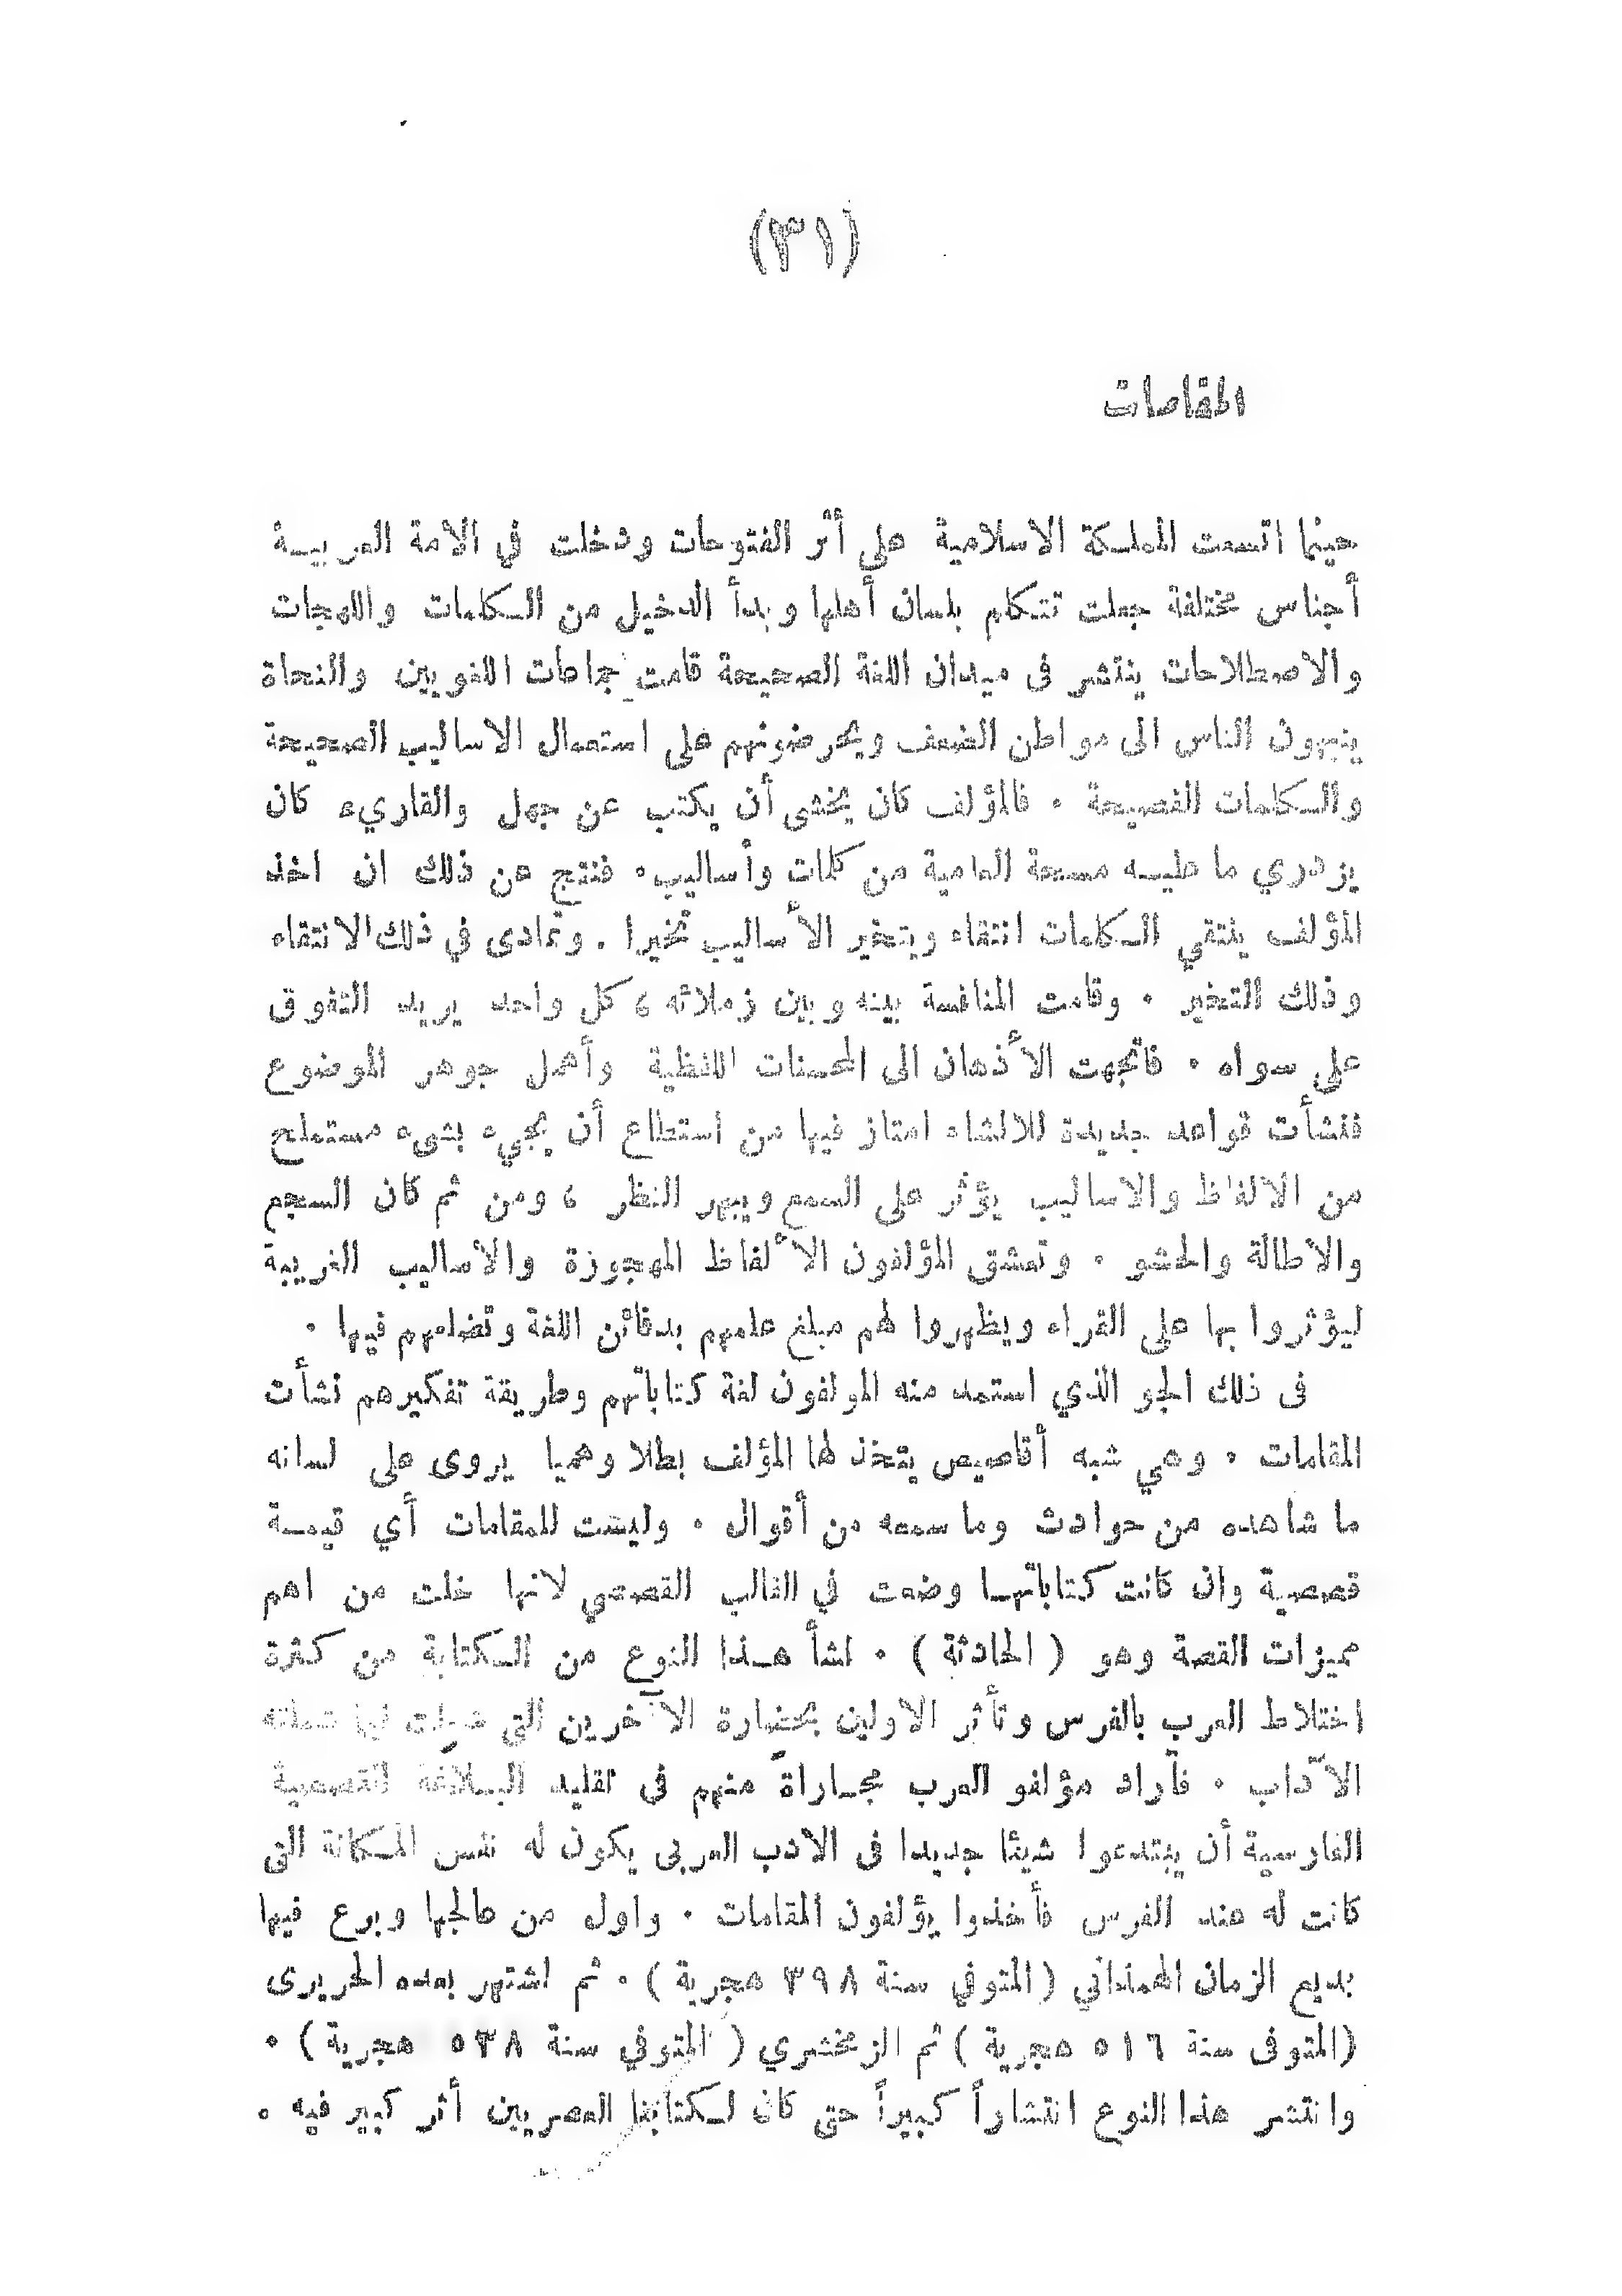 (٣١)
المقامات
حينما اتسعت المملكة الاسلامية على أثر الفتوحات ودخلت في الامة العربيـة
أجناس مختلفة جعلت تتكلم بلسان أهلها وبدأ الدخيل من الكلمات واللهجات
والاصطلاحات ينتشر فى ميدان اللغة الصحيحة قامت جماعات اللغويين والنحاة
ينبهون الناس الى مواطن الضعف ويحرضونهم على استعمال الاساليب الصحيحة
والكلمات الفصيحة . فالمؤلف كان يخشى أن يكتب عن جهل والقاريء كان
يزدري ما عليه مسحة العامية من كلمات وأساليب. فنتج عن ذلك ان اخذ
المؤلف ينتقي الكلمات انتقاء ويتخير الأساليب تخيرا . وتمادى في ذلك الانتقاء
وذلك التخير . وقامت المنافسة بينه وبين زملائه ، كل واحد يريد التفوق
على سواه . فاتجهت الأذهان الى المحسنات اللفظية وأهمل جوهر الموضوع
فنشأت قواعد جديدة للانشاء امتاز فيها من استطاع أن يجيء بشىء مستملح
من الالفاظ والاساليب يؤثر على السمع ويبهر النظر ، ومن ثم كان السجع
والاطالة والحشو . وتعشق المؤلفون الألفاظ المهجوزة والاساليب الغريبة
ليؤثروا بها على القراء ويظهروا لهم مبلغ علمهم بدقائن اللغة وتضلعهم فيها .
فى ذلك الجو الذي استمد منه المولفون لغة كتاباتهم وطريقة تفكيرهم نشأت
المقامات . وهي شبه أقاصيص يتخذ لها المؤلف بطلا وهميا يروى على لسانه
ما شاهده من حوادث وما سمعه من أقوال . وليست للمقامات أي قيمـة
قصصية وان كانت كتاباتهـا وضعت في القالب القصصي لانها خلت من اهم
مميزات القصة وهو ( الحادثة ) . نشأ هـذا النوع من الكتابة من كثرة
اختلاط العرب بالفرس وتأثر الاولين بحضارة الآخرين التى
الآداب . فأراد مؤلفو العرب مجـاراة منهم فى تقليد البـلاغة القصصية
الفارسية أن يبتدعوا شيئا جديدا فى الادب العربى يكون له نفس المكانة التى
كانت له عند الفرس فأخذوا يؤلفون المقامات . واول من عالجها وبرع فيها
بديع الزمان الهمذاني ( المتوفي سنة ٣٩٨ هجرية ) . ثم اشتهر بعده الحريرى
(المتوفى سنة ٥١٦ هجرية ) ثم الزمخشري ( المتوفي سنة ٥٣٨ هجرية ) .
وانتشر هذا النوع انتشاراً كبيراً حتى كان لكتابنا العصريين أثر كبير فيه .